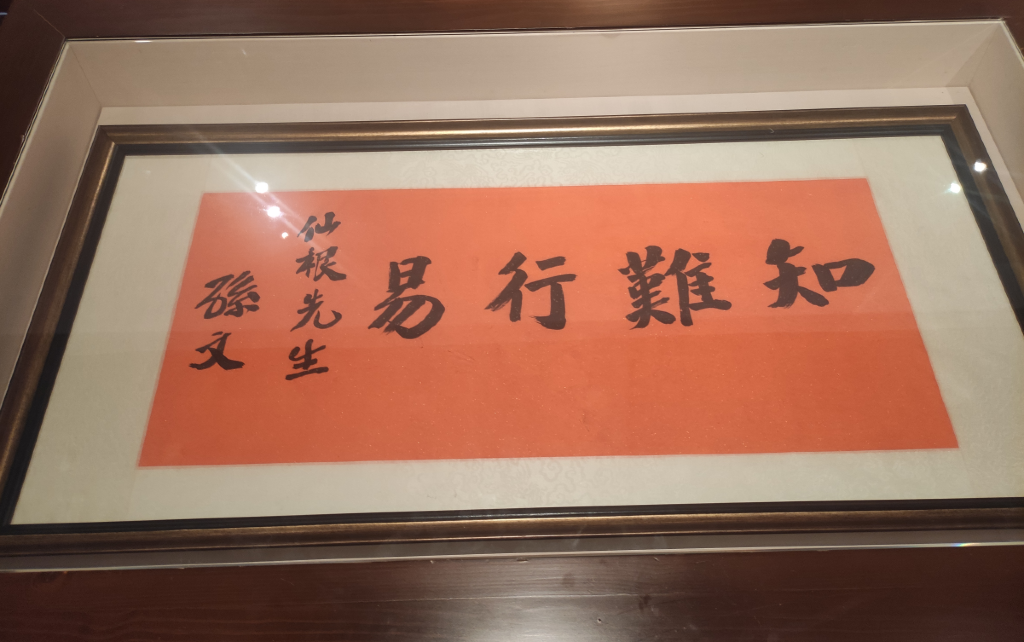 知難行易
仙根先生
孫文